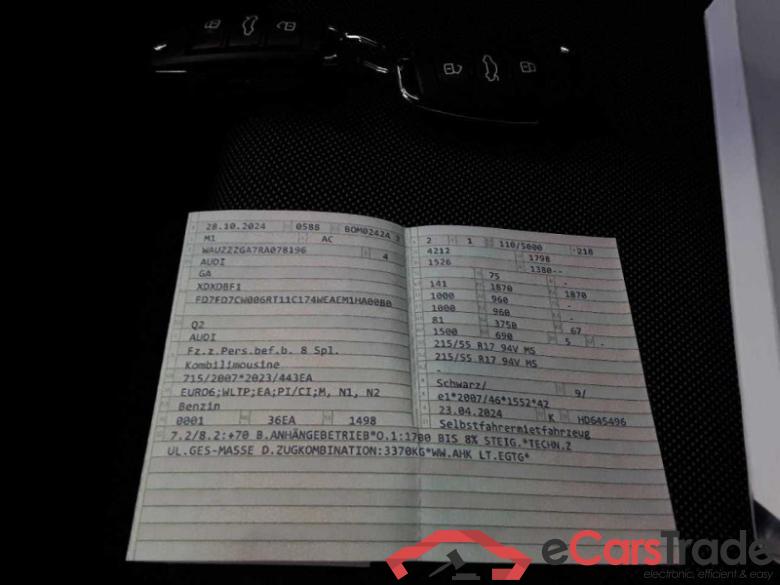 28.10.2024 0588 BOM02424 2
M1 AC
WAUZZZGA7RA078196 4
AUDI
GA
XDXDBF1
FD7FD7CW006RT11C174WEAEM1HA00B0
Q2
AUDI
Fz.z.Pers.bef.b. 8 Spl.
Kombilimousine
715/2007*2023/443EA
EURO6;WLTP;EA;PI/CI;M, N1, N2
Benzin
0001 36EA 1498
2 1 110/5000 218
4212 1798
1526 1380--
75 -
141 1870 1870
1000 960 -
1000 960 -
81 3750 67
1500 690 5 -
215/55 R17 94V MS
215/55 R17 94V MS
-
Schwarz/ 9/
e1*2007/46*1552*42
23.04.2024 K HD645496
Selbstfahrermietfahrzeug
7.2/8.2:+70 B.ANHÄNGEBETRIEB*O.1:1700 BIS 8% STEIG.*TECHN.Z
UL.GES-MASSE D.ZUGKOMBINATION:3370KG*WW.AHK LT.EGTG*
eCarsTrade
electronic, efficient & easy